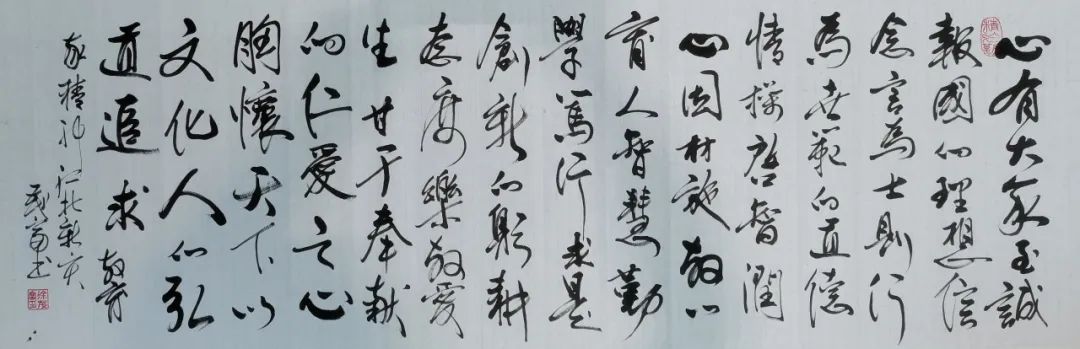 心有大我至誠
報國的理想信
念言為士則行
為世範的道德
情操啓智潤
心因材施教的
育人智慧勤
學篤行求是
創新的躬耕
态度樂教愛
生甘于奉献
的仁愛之心
胸懷天下以
文化人的弘
道追求 教育
家精神
書